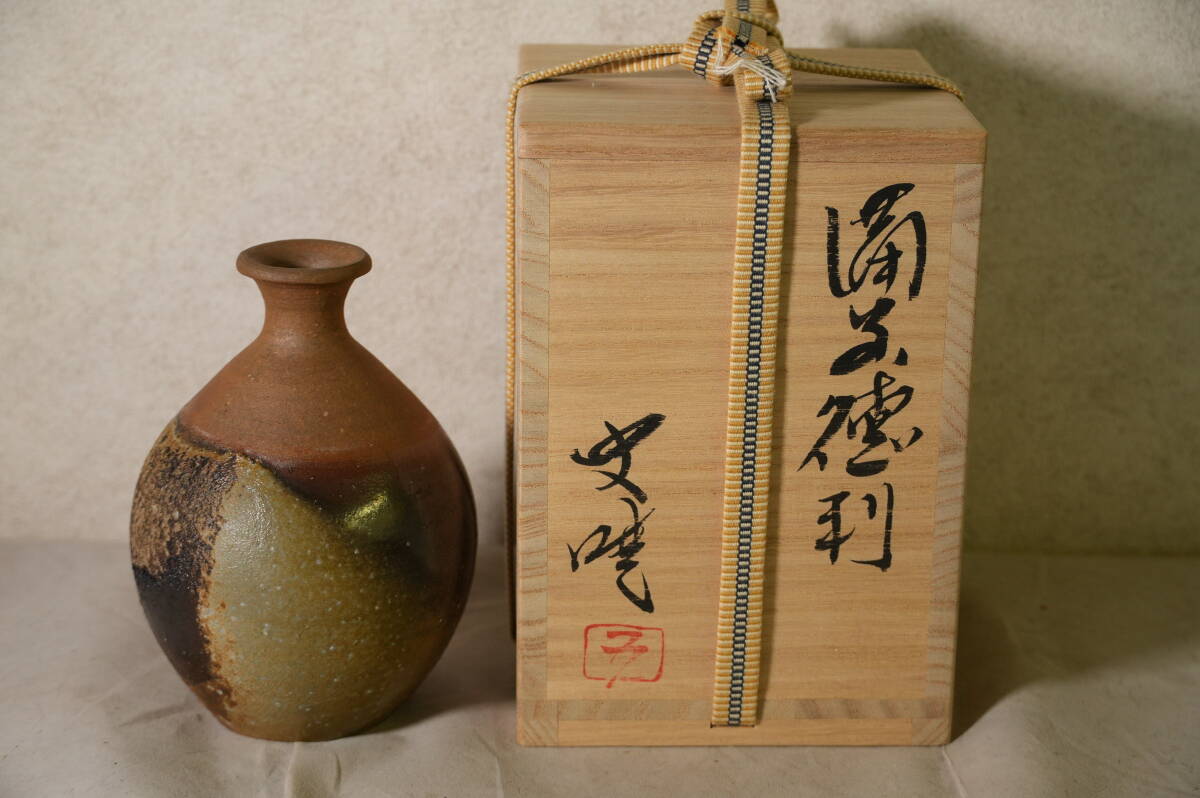 備前徳利
史暁